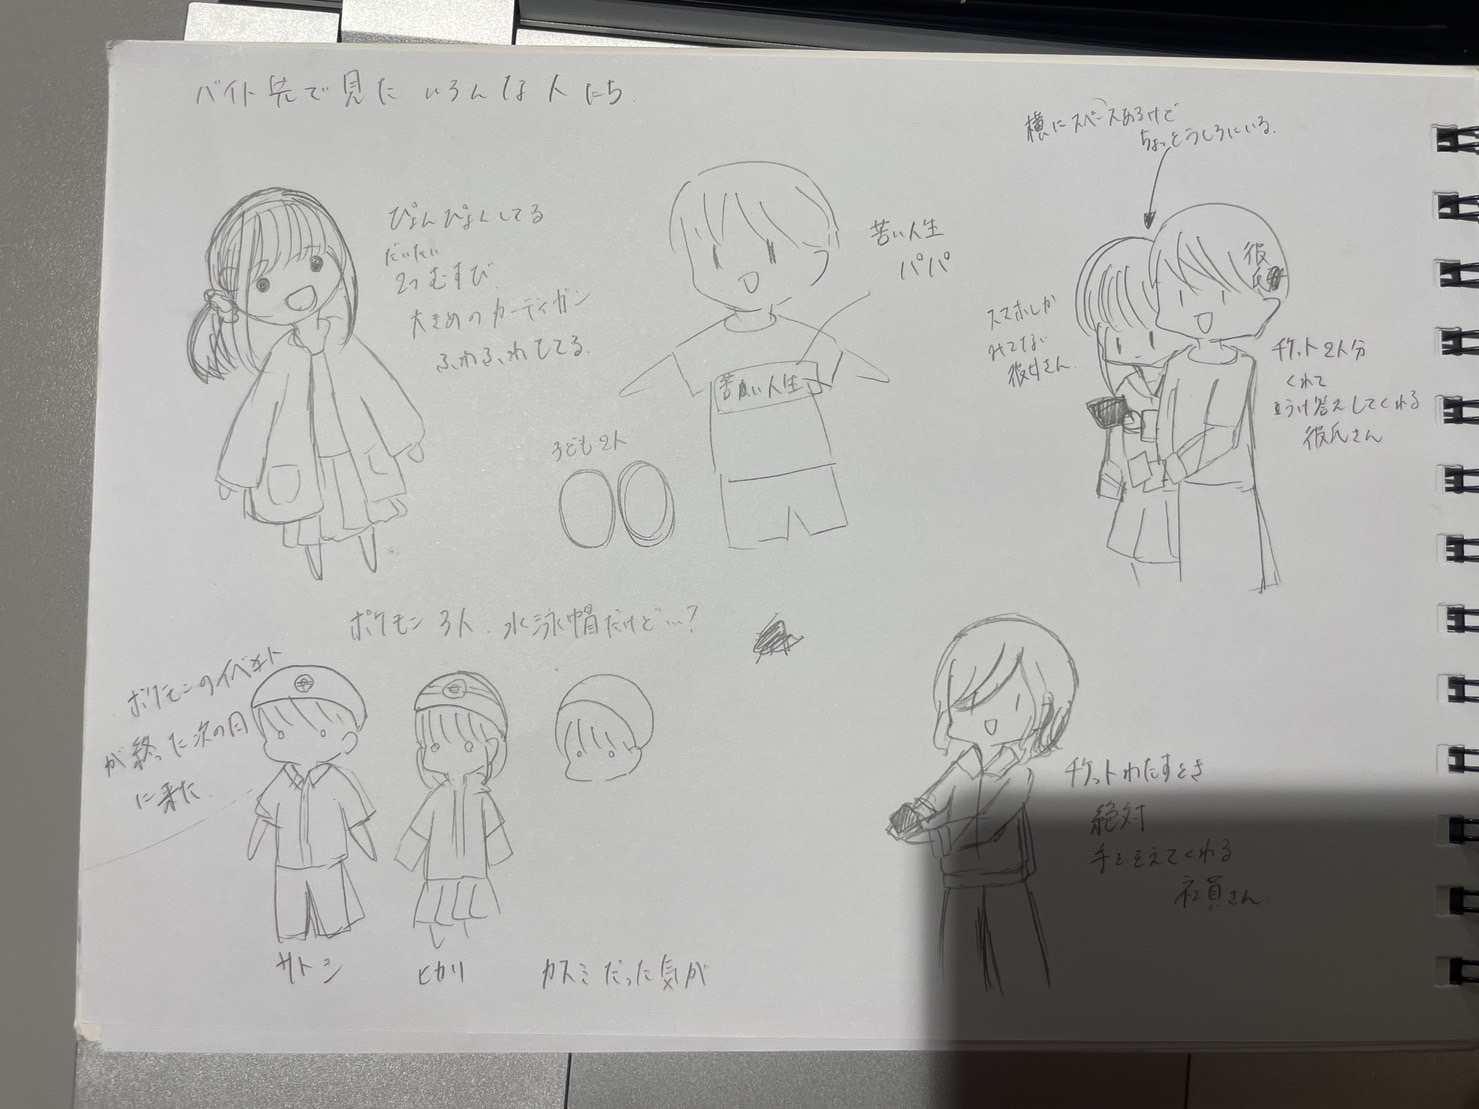 バイト先で見た いろんな人たち
ぴょんぴょんしてる
だいたい
2つむすび
大きめのカーディガン
ふわふわしてる.
苦い人生
パパ
苦い人生
子ども2人
横にスペースあるけど
ちょっとうしろにいる.
彼氏
スマホしか
みてない
彼女さん
チケット2人分
くれて
うけ答えしてくれる
彼氏さん
ポケモン3人. 水泳帽だけど…?
ポケモンのイベント
が終った次の日
に来た
サトシ
ヒカリ
カスミだった気が
チケットわたすとき
絶対
手をそえてくれる
社員さん